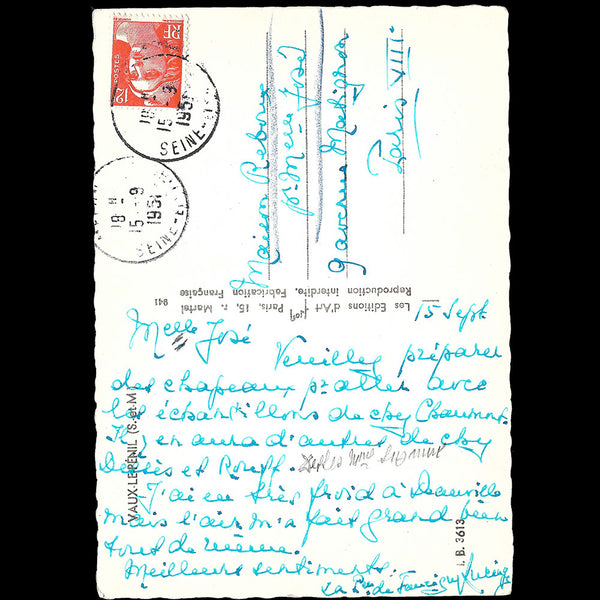 RF
POSTES
12F
18 H
15 - 9
1951
SEINE-
18 H
15 - 9
1951
SEINE-
Maison Reboux
pr Melle José
9 avenue Matignon
Paris VIII
Les Editions d'Art Paris, 15, r. Martel
Reproduction Interdite. Fabrication Française
941
VAUX-LE-PÉNIL (S.-et-M.)
I. B. 3613
15 Sept
Melle José
Veuillez préparer
des chapeaux pr aller avec
les échantillons de chez Chaumont.
Il y en aura d'autres de chez
Dessès et Rouff.
J'ai eu très froid à Deauville
mais l'air m'a fait grand bien
tout de même.
Meilleurs sentiments.
La Psse de Faucigny Lucinge